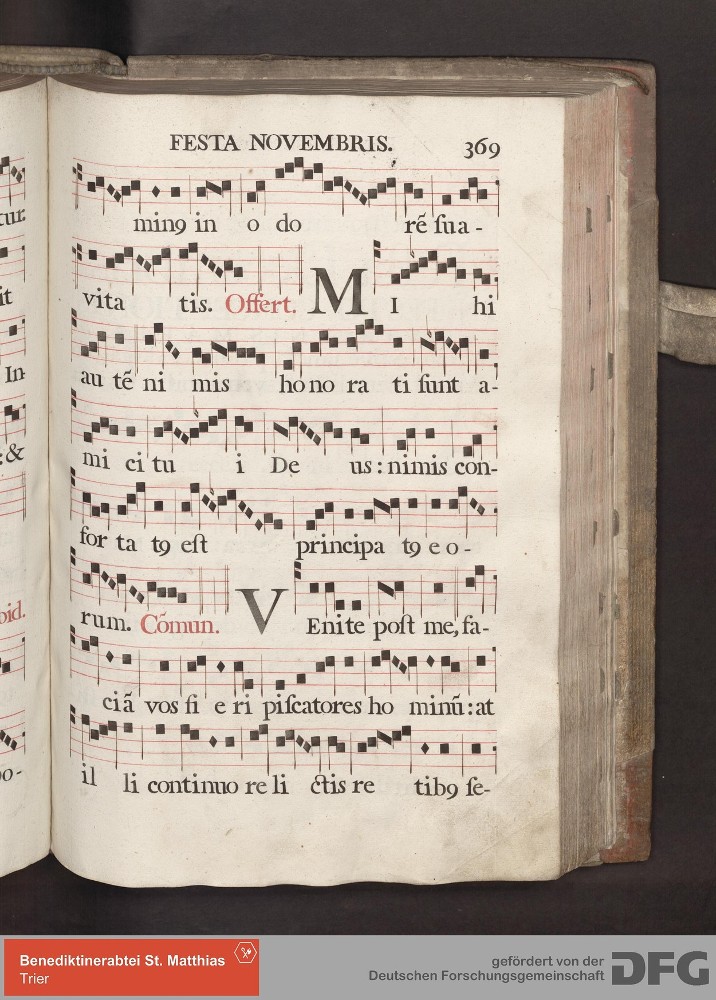 FESTA NOVEMBRIS. 369
minꝰ in o do rē ſua-
vita tis. Offert. M I hi
au tē ni mis ho no ra ti ſunt a-
mi ci tu i De us: nimis con-
for ta tꝰ eſt principa tꝰ e o-
rum. Cōmun. V Enite poſt me, fa-
ciā vos fi e ri piſcatores ho minū: at
il li continuo re li ctis re tibꝰ ſe-
tur.
it
In
: &
oid.
oo-
Benediktinerabtei St. Matthias
Trier
gefördert von der
Deutschen Forschungsgemeinschaft DFG